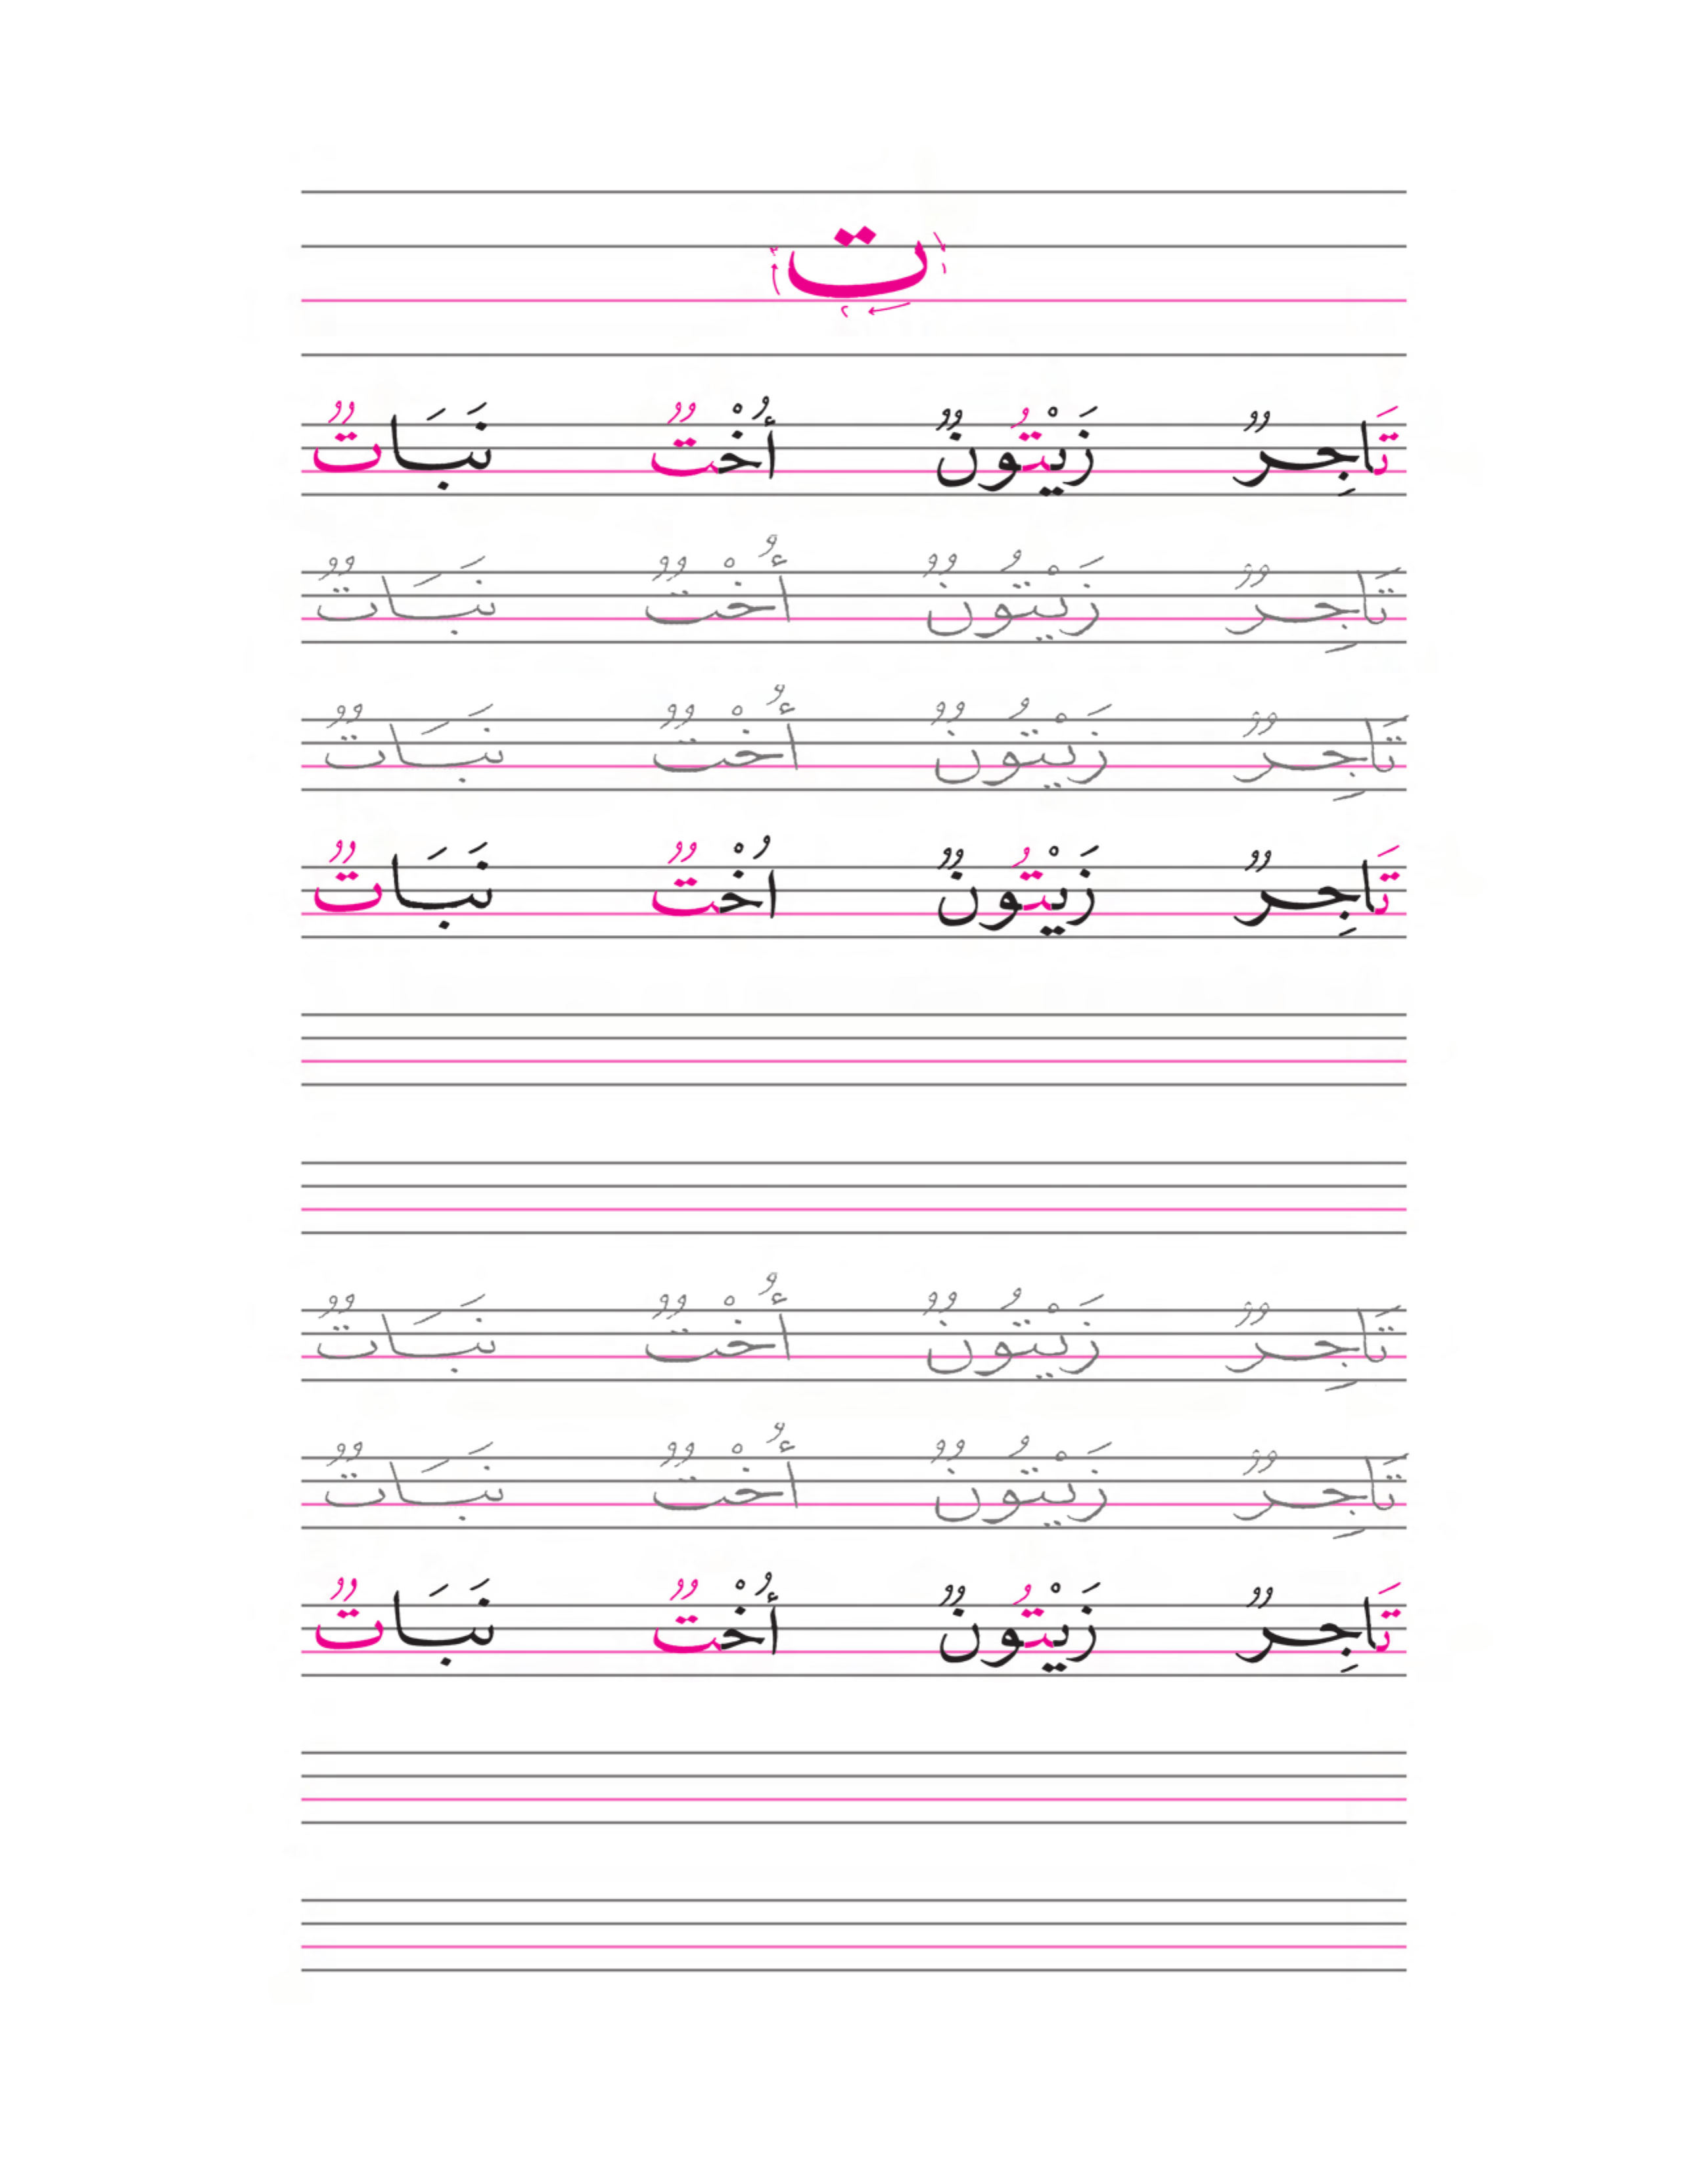 ت
١ ٢ ٣
تَاجِرٌ زَيْتُونٌ أُخْتٌ نَبَاتٌ
تَاجِرٌ زَيْتُونٌ أُخْتٌ نَبَاتٌ
تَاجِرٌ زَيْتُونٌ أُخْتٌ نَبَاتٌ
تَاجِرٌ زَيْتُونٌ اُخْتٌ نَبَاتٌ
تَاجِرٌ زَيْتُونٌ أُخْتٌ نَبَاتٌ
تَاجِرٌ زَيْتُونٌ أُخْتٌ نَبَاتٌ
تَاجِرٌ زَيْتُونٌ أُخْتٌ نَبَاتٌ